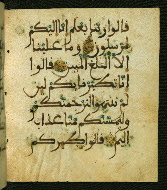 قالوا ربنا يعلم إنا إليكم
لمرسلون وما علينا
إلا البلغ المبين قالوا
إنا تطيرنا بكم لئن
لم تنتهوا لنرجمنكم
وليمسنكم منا عذاب
أليم قالوا طئركم